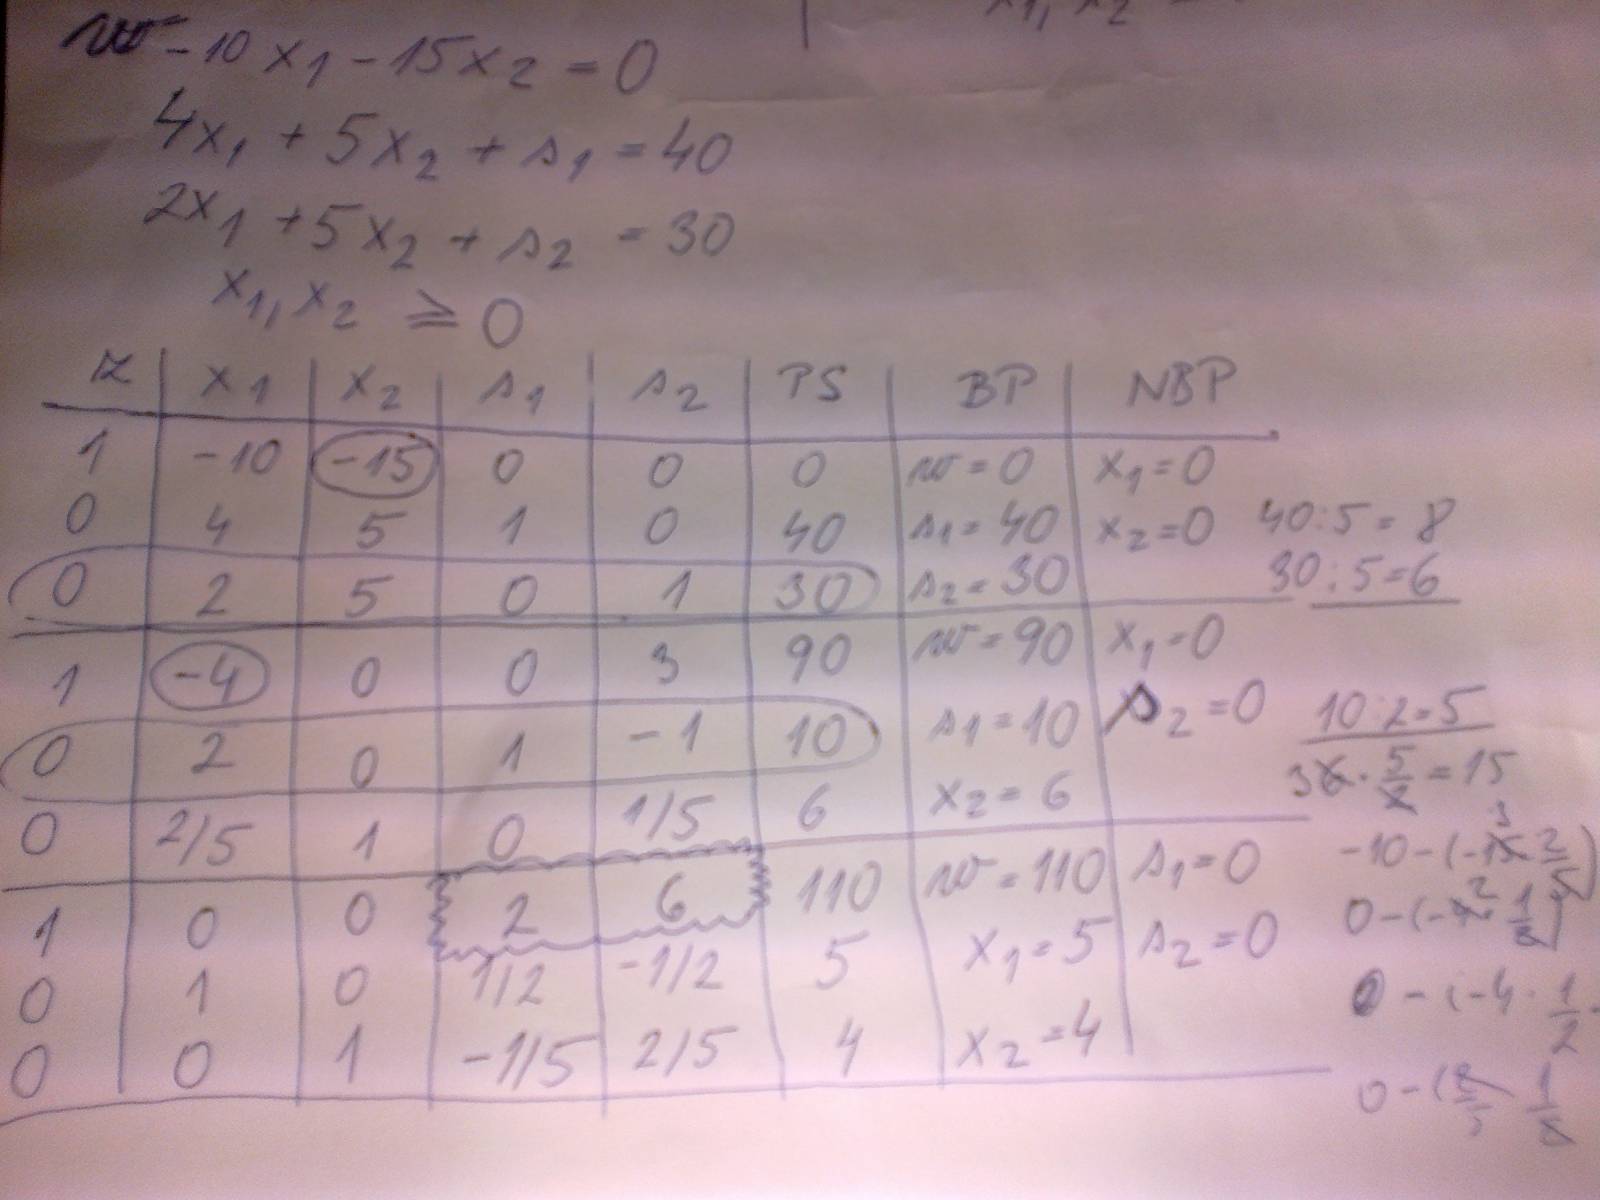 x₁, x₂
w - 10x₁ - 15x₂ = 0
4x₁ + 5x₂ + s₁ = 40
2x₁ + 5x₂ + s₂ = 30
x₁, x₂ ≥ 0
z | x₁ | x₂ | s₁ | s₂ | PS | BP | NBP
1 | -10 | -15 | 0 | 0 | 0 | w = 0 | x₁ = 0
0 | 4 | 5 | 1 | 0 | 40 | s₁ = 40 | x₂ = 0 40:5 = 8
0 | 2 | 5 | 0 | 1 | 30 | s₂ = 30 30:5 = 6
1 | -4 | 0 | 0 | 3 | 90 | w = 90 | x₁ = 0
0 | 2 | 0 | 1 | -1 | 10 | s₁ = 10 | s₂ = 0 10:2 = 5
0 | 2/5 | 1 | 0 | 1/5 | 6 | x₂ = 6
1 | 0 | 0 | 2 | 6 | 110 | w = 110 | s₁ = 0
0 | 1 | 0 | 1/2 | -1/2 | 5 | x₁ = 5 | s₂ = 0
0 | 0 | 1 | -1/5 | 2/5 | 4 | x₂ = 4
= 15
-10 - (-15 · 2/5)
0 - (-4 · 1/2